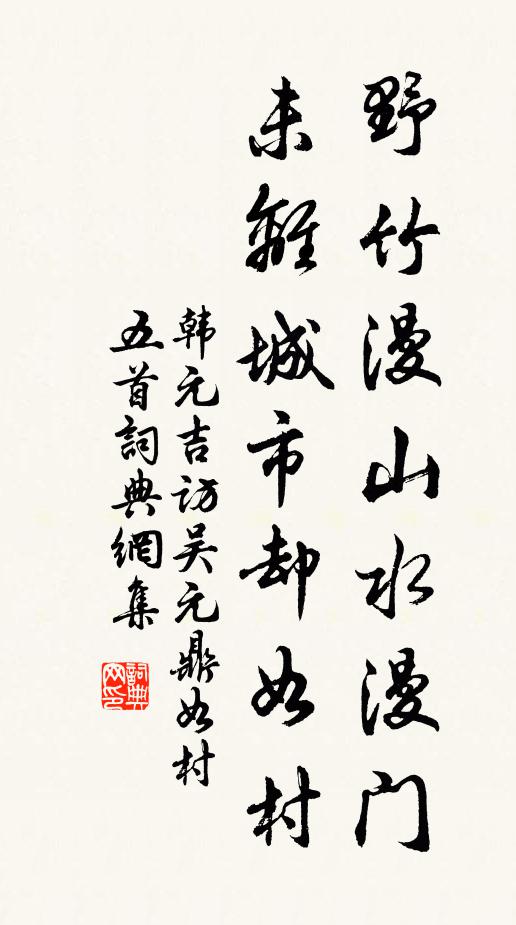 野竹漫山水漫门
未離城市却如村
韩元吉访吴元鼎如村
五首詞典網集
詞典网印